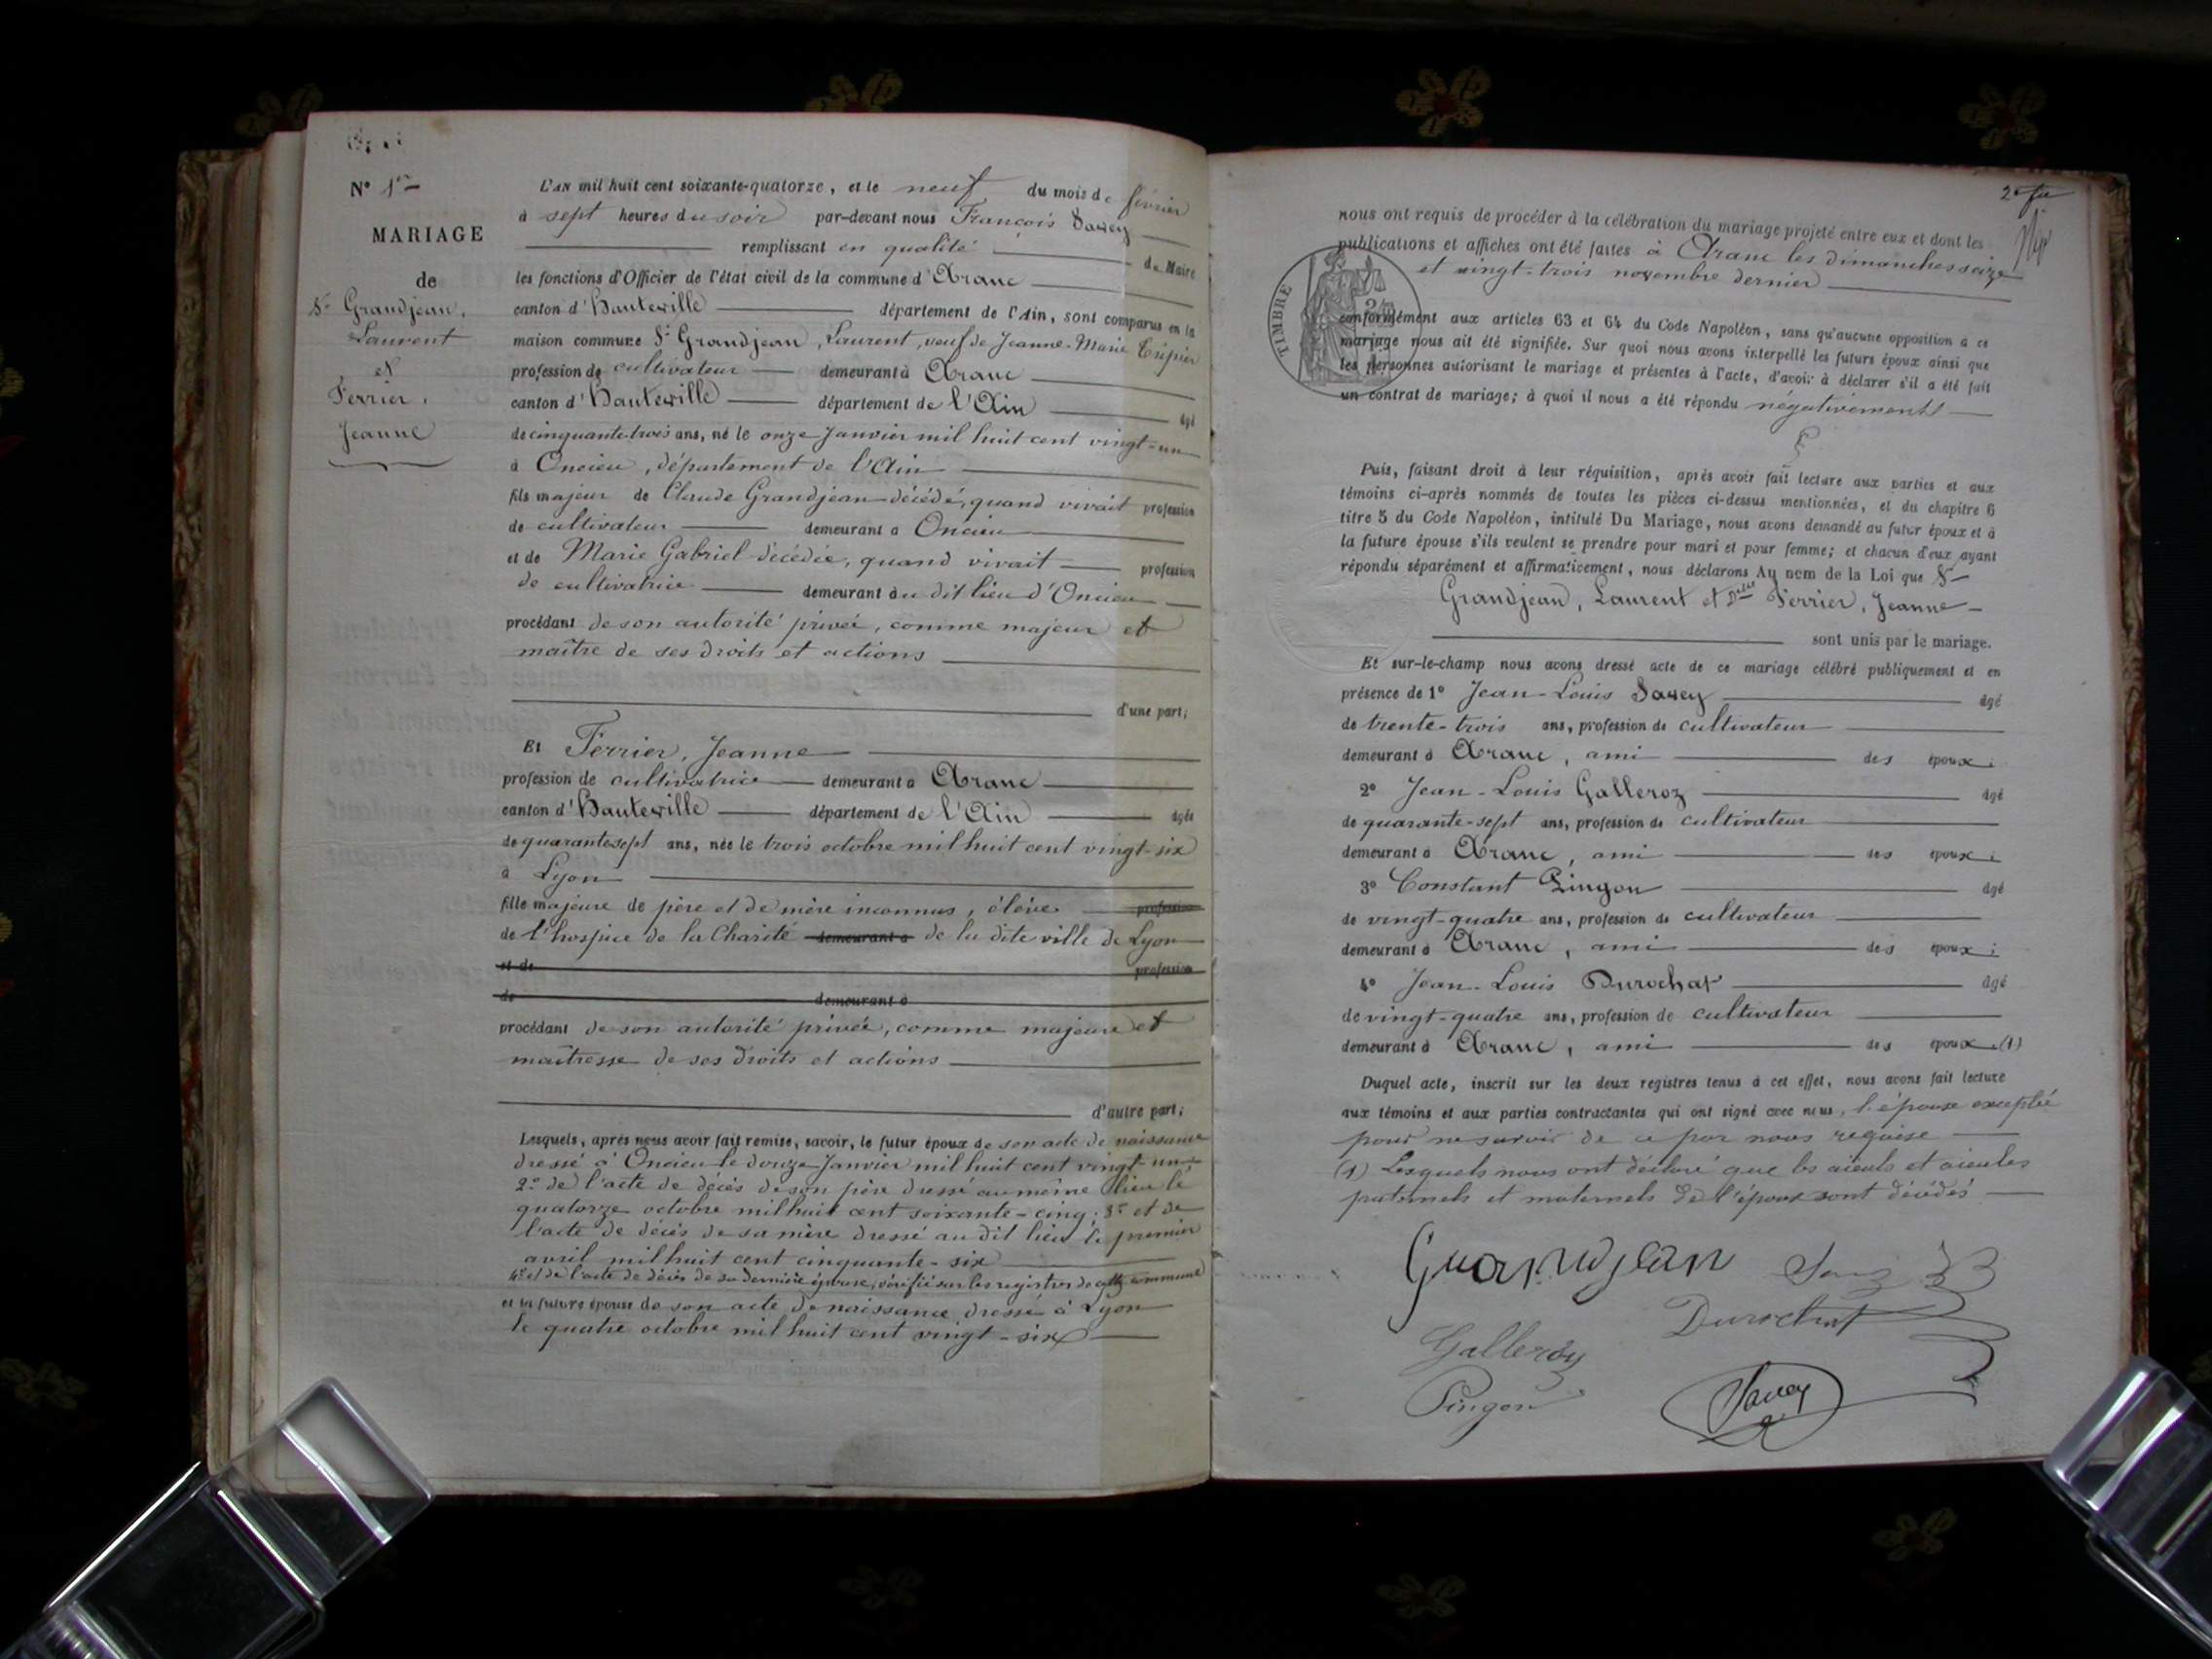 N° 1er
MARIAGE
de
Sr Grandjean,
Laurent
et
Ferrier,
Jeanne
L'AN mil huit cent soixante-quatorze, et le neuf du mois de février
à sept heures du soir par-devant nous François Savey
remplissant en qualité de Maire
les fonctions d'Officier de l'état civil de la commune d'Aranc
canton d'Hauteville département de l'Ain, sont comparus en la
maison commune Sr Grandjean, Laurent, veuf de Jeanne-Marie
profession de cultivateur demeurant à Aranc
canton d'Hauteville département de l'Ain âgé
de cinquante-trois ans, né le onze Janvier mil huit cent vingt-un
à Oncieu, département de l'Ain
fils majeur de Claude Grandjean décédé, quand vivait profession
de cultivateur demeurant à Oncieu
et de Marie Gabriel décédée, quand vivait profession
de cultivatrice demeurant au dit lieu d'Oncieu
procédant de son autorité privée, comme majeur et
maître de ses droits et actions
d'une part;
Et Ferrier, Jeanne
profession de cultivatrice demeurant à Aranc
canton d'Hauteville département de l'Ain âgée
de quarante sept ans, née le trois octobre mil huit cent vingt-six
à Lyon
fille majeure de père et de mère inconnus, élève profession
de l'hospice de la Charité demeurant à de la dite ville de Lyon
et de profession
de demeurant à
procédant de son autorité privée, comme majeure et
maîtresse de ses droits et actions
d'autre part;
Lesquels, après nous avoir fait remise, savoir, le futur époux de son acte de naissance
dressé à Oncieu le douze Janvier mil huit cent vingt-un
2° de l'acte de décès de son père dressé au même lieu le
quatorze octobre mil huit cent soixante-cinq; 3° et de
l'acte de décès de sa mère dressé au dit lieu le premier
avril mil huit cent cinquante-six
4° et de l'acte de décès de sa dernière épouse, vérifié sur les registres de cette commune
et la future épouse de son acte de naissance dressé à Lyon
le quatre octobre mil huit cent vingt-six
nous ont requis de procéder à la célébration du mariage projeté entre eux et dont les
publications et affiches ont été faites à Aranc les dimanches seize
et vingt-trois novembre dernier
TIMBRE
conformément aux articles 63 et 64 du Code Napoléon, sans qu'aucune opposition à ce
mariage nous ait été signifiée. Sur quoi nous avons interpellé les futurs époux ainsi que
les personnes autorisant le mariage et présentes à l'acte, d'avoir à déclarer s'il a été fait
un contrat de mariage; à quoi il nous a été répondu négativement
Puis, faisant droit à leur réquisition, après avoir fait lecture aux parties et aux
témoins ci-après nommés de toutes les pièces ci-dessus mentionnées, et du chapitre 6
titre 5 du Code Napoléon, intitulé Du Mariage, nous avons demandé au futur époux et à
la future épouse s'ils veulent se prendre pour mari et pour femme; et chacun d'eux ayant
répondu séparément et affirmativement, nous déclarons Au nom de la Loi que Sr
Grandjean, Laurent et Delle Ferrier, Jeanne
sont unis par le mariage.
Et sur-le-champ nous avons dressé acte de ce mariage célébré publiquement et en
présence de 1° Jean-Louis Savey âgé
de trente-trois ans, profession de cultivateur
demeurant à Aranc, ami des époux;
2° Jean-Louis Galleroz âgé
de quarante-sept ans, profession de cultivateur
demeurant à Aranc, ami des époux;
3° Constant Pingon âgé
de vingt-quatre ans, profession de cultivateur
demeurant à Aranc, ami des époux;
4° Jean-Louis Durochat âgé
de vingt-quatre ans, profession de cultivateur
demeurant à Aranc, ami des époux. (1)
Duquel acte, inscrit sur les deux registres tenus à cet effet, nous avons fait lecture
aux témoins et aux parties contractantes qui ont signé avec nous, l'épouse exceptée
pour ne savoir de ce par nous requise
(1) Lesquels nous ont déclaré que les aïeuls et aïeules
paternels et maternels de l'époux sont décédés
Grandjean
Durochat
Galleroz
Pingon
Savey